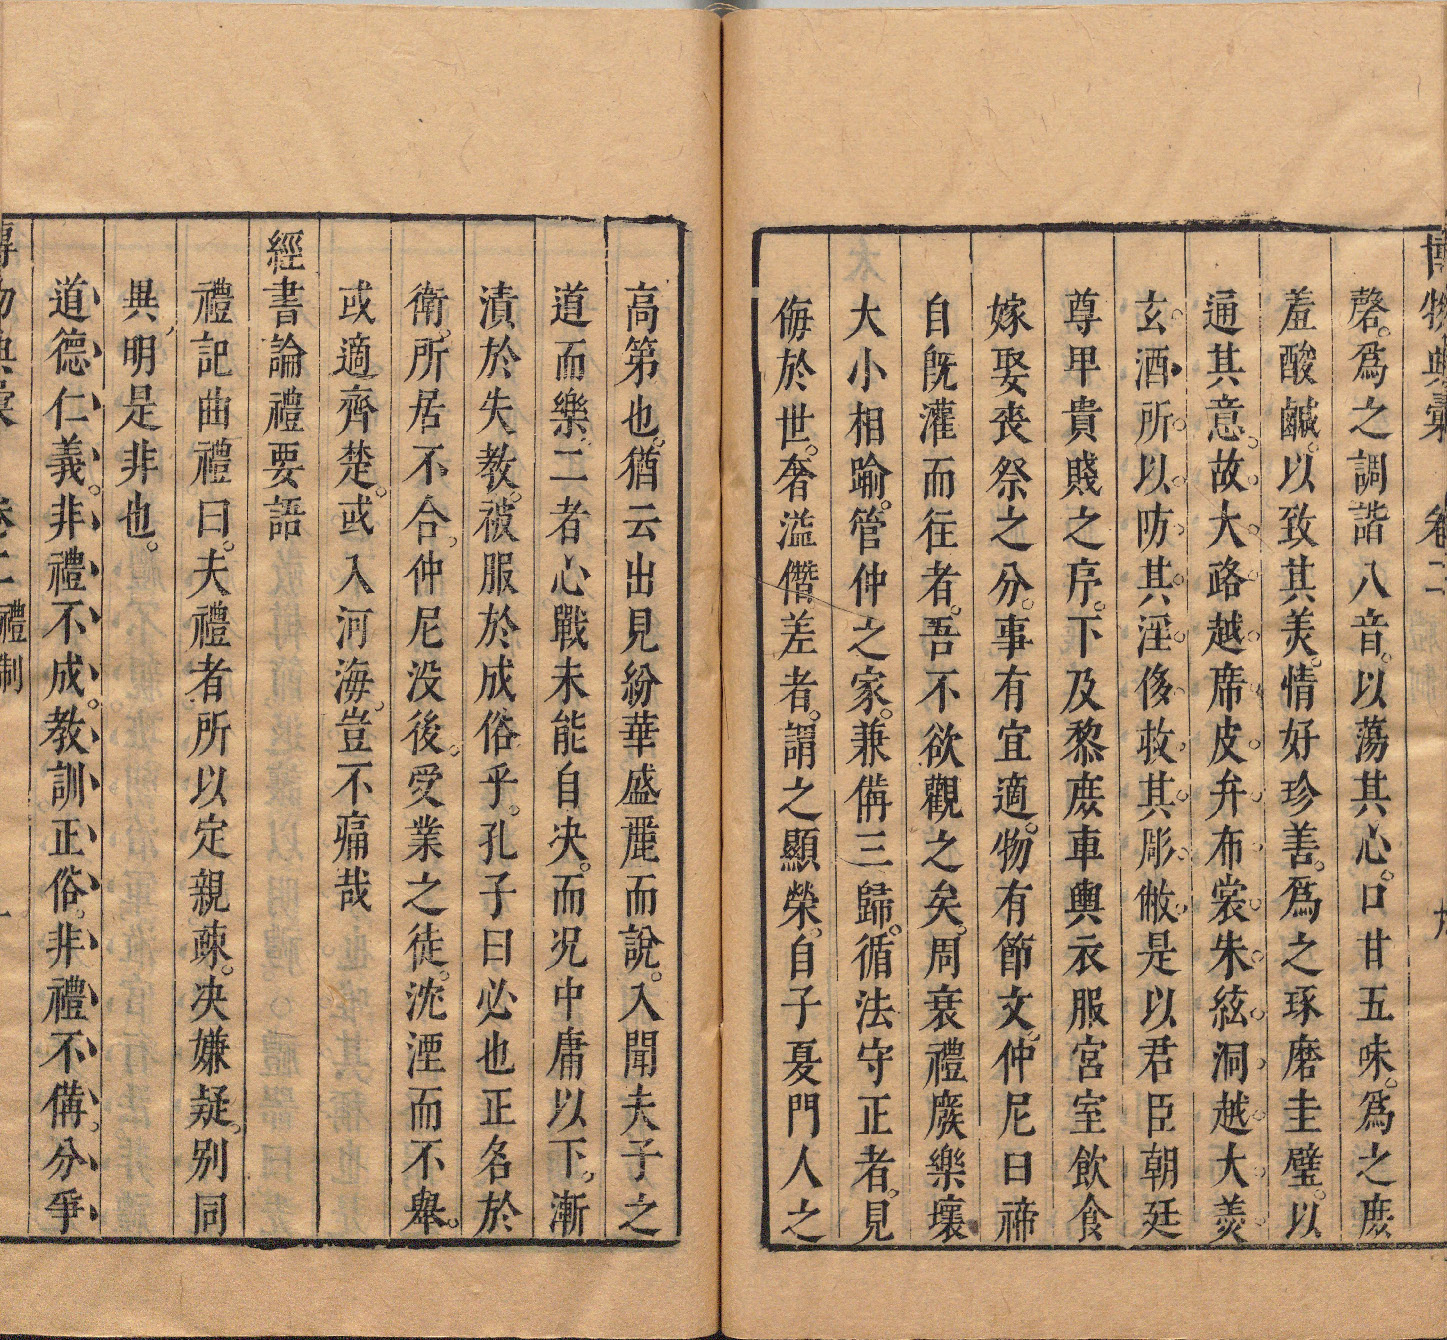 博物典彙 卷二 九
磬。爲之調諧八音。以蕩其心。口甘五味。爲之庶
羞酸鹹。以致其美。情好珍善。爲之琢磨圭璧。以
通其意。故大路越席皮弁布裳朱絃洞越大羮
玄酒所以防其淫侈救其彫敝是以君臣朝廷
尊卑貴賤之序。下及黎庶車輿衣服宮室飲食
嫁娶丧祭之分。事有宜適。物有節文。仲尼曰禘
自旣灌而往者。吾不欲觀之矣。周衰禮廢樂壞
大小相踰。管仲之家。兼備三歸。循法守正者。見
侮於世。奢溢僭差者。謂之顯榮。自子夏門人之
高第也。猶云出見紛華盛麗而說。入聞夫子之
道而樂。二者心戰未能自决。而况中庸以下。漸
漬於失教。被服於成俗乎。孔子曰必也正名於
衛。所居不合。仲尼没後。受業之徒。沈湮而不舉。
或適齊楚。或入河海。豈不痛哉
經書論禮要語
禮記曲禮曰。夫禮者所以定親疎。决嫌疑。别同
異。明是非也。
道德仁義。非禮不成。教訓正俗。非禮不備。分爭
博物典彙 卷二 禮制